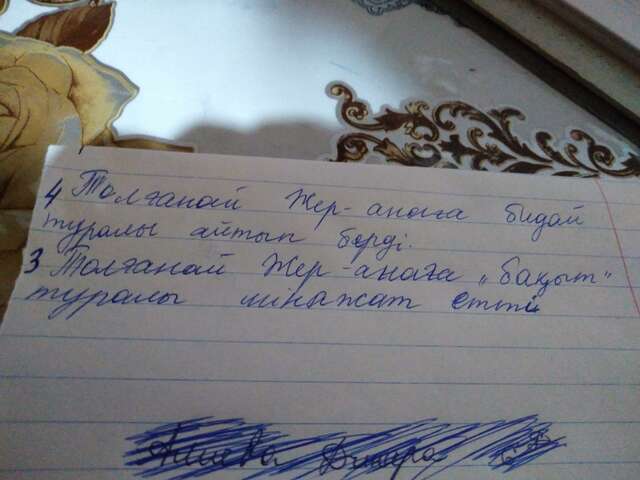 4 Толғанай Жер-анаға бидай
туралы айтып берді.
3 Толғанай Жер-анаға „бақыт"
туралы мінажат етті